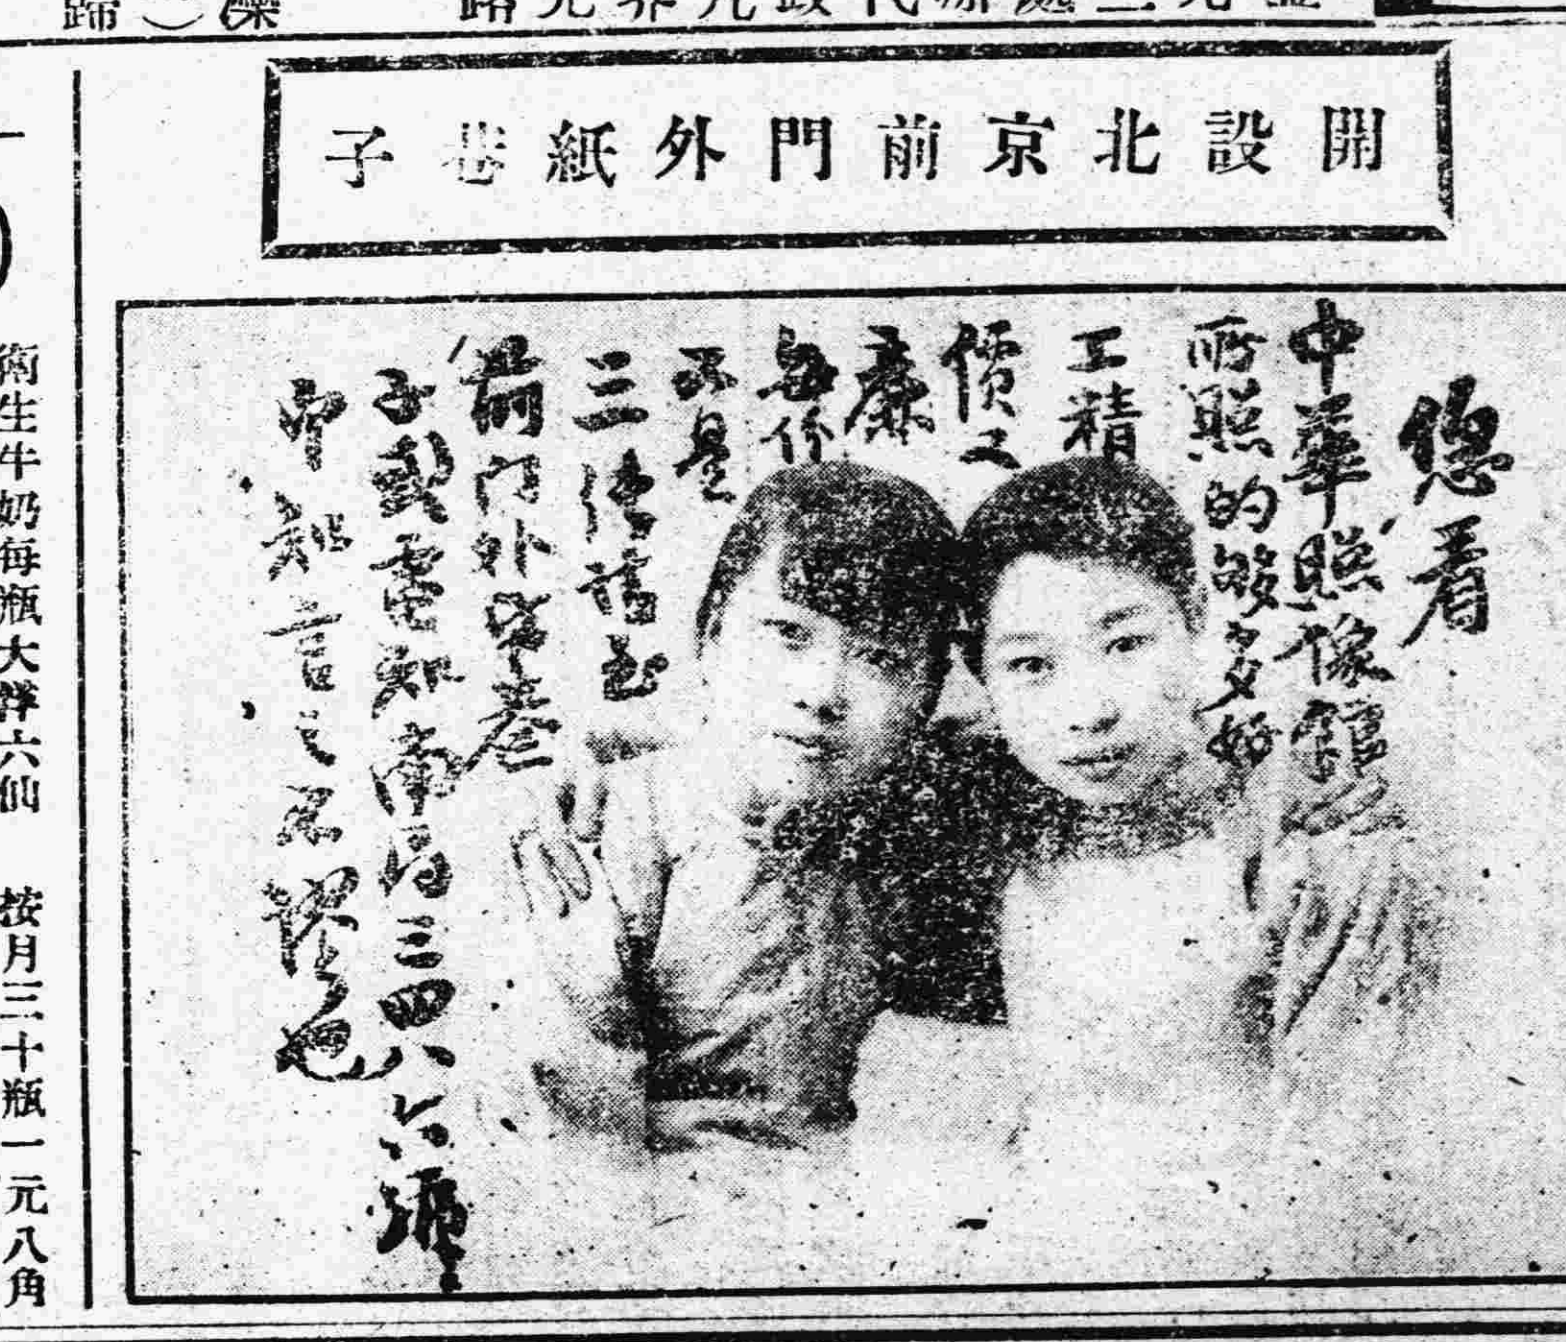 開設北京前門外紙巷子
您看
中華照像館
所照的够多好
工精
價又
廉
每份
不是
三
前门外紙巷
子啊電知南局三四八六號
即知言之不謬也
衛生牛奶每瓶大洋六仙 按月三十瓶一元八角